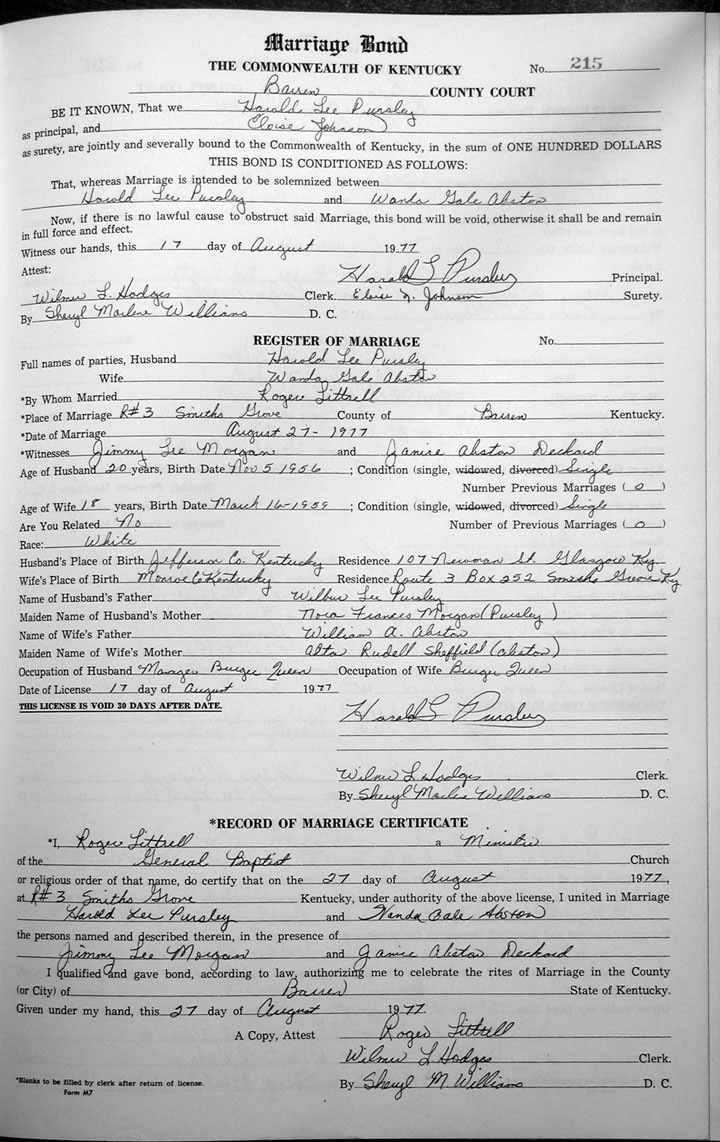 Marriage Bond
THE COMMONWEALTH OF KENTUCKY No. 215
Barren COUNTY COURT
BE IT KNOWN, That we Harold Lee Pursley
as principal, and Eloise Johnson
as surety, are jointly and severally bound to the Commonwealth of Kentucky, in the sum of ONE HUNDRED DOLLARS
THIS BOND IS CONDITIONED AS FOLLOWS:
That, whereas Marriage is intended to be solemnized between
Harold Lee Pursley and Wanda Gale Abston
Now, if there is no lawful cause to obstruct said Marriage, this bond will be void, otherwise it shall be and remain
in full force and effect.
Witness our hands, this 17 day of August 1977
Attest: Harold L Pursley Principal.
Wilmer L. Hodges Clerk. Eloise Johnson Surety.
By Sheryl Marlene Williams D. C.
REGISTER OF MARRIAGE No.
Full names of parties, Husband Harold Lee Pursley
Wife Wanda Gale Abston
*By Whom Married Roger Littrell
*Place of Marriage R#3 Smiths Grove County of Barren Kentucky.
*Date of Marriage August 27- 1977
*Witnesses Jimmy Lee Morgan and Janice Abston Deckard
Age of Husband 20 years, Birth Date Nov 5 1956 ; Condition (single, widowed, divorced) Single
Number Previous Marriages ( 0 )
Age of Wife 18 years, Birth Date March 16-1959 ; Condition (single, widowed, divorced) Single
Are You Related No Number of Previous Marriages ( 0 )
Race: White
Husband's Place of Birth Jefferson Co. Kentucky Residence 107 Newman St. Glasgow Ky.
Wife's Place of Birth Monroe Co Kentucky Residence Route 3 Box 252 Smiths Grove Ky
Name of Husband's Father Wilbur Lee Pursley
Maiden Name of Husband's Mother Nora Frances Morgan (Pursley)
Name of Wife's Father William A. Abston
Maiden Name of Wife's Mother Alta Rudell Sheffield (Abston)
Occupation of Husband Manager Burger Queen Occupation of Wife Burger Queen
Date of License 17 day of August 1977
THIS LICENSE IS VOID 30 DAYS AFTER DATE.
Harold L Pursley
Wilmer L Hodges Clerk.
By Sheryl Marlene Williams D. C.
*RECORD OF MARRIAGE CERTIFICATE
*I, Roger Littrell a Minister
of the General Baptist Church
or religious order of that name, do certify that on the 27 day of August 1977,
at R#3 Smiths Grove Kentucky, under authority of the above license, I united in Marriage
Harold Lee Pursley and Wanda Gale Abston
the persons named and described therein, in the presence of
Jimmy Lee Morgan and Janice Abston Deckard
I qualified and gave bond, according to law, authorizing me to celebrate the rites of Marriage in the County
(or City) of Barren State of Kentucky.
Given under my hand, this 27 day of August 1977.
A Copy, Attest Roger Littrell
Wilmer L Hodges Clerk.
*Blanks to be filled by clerk after return of license. By Sheryl M Williams D. C.
Form M7